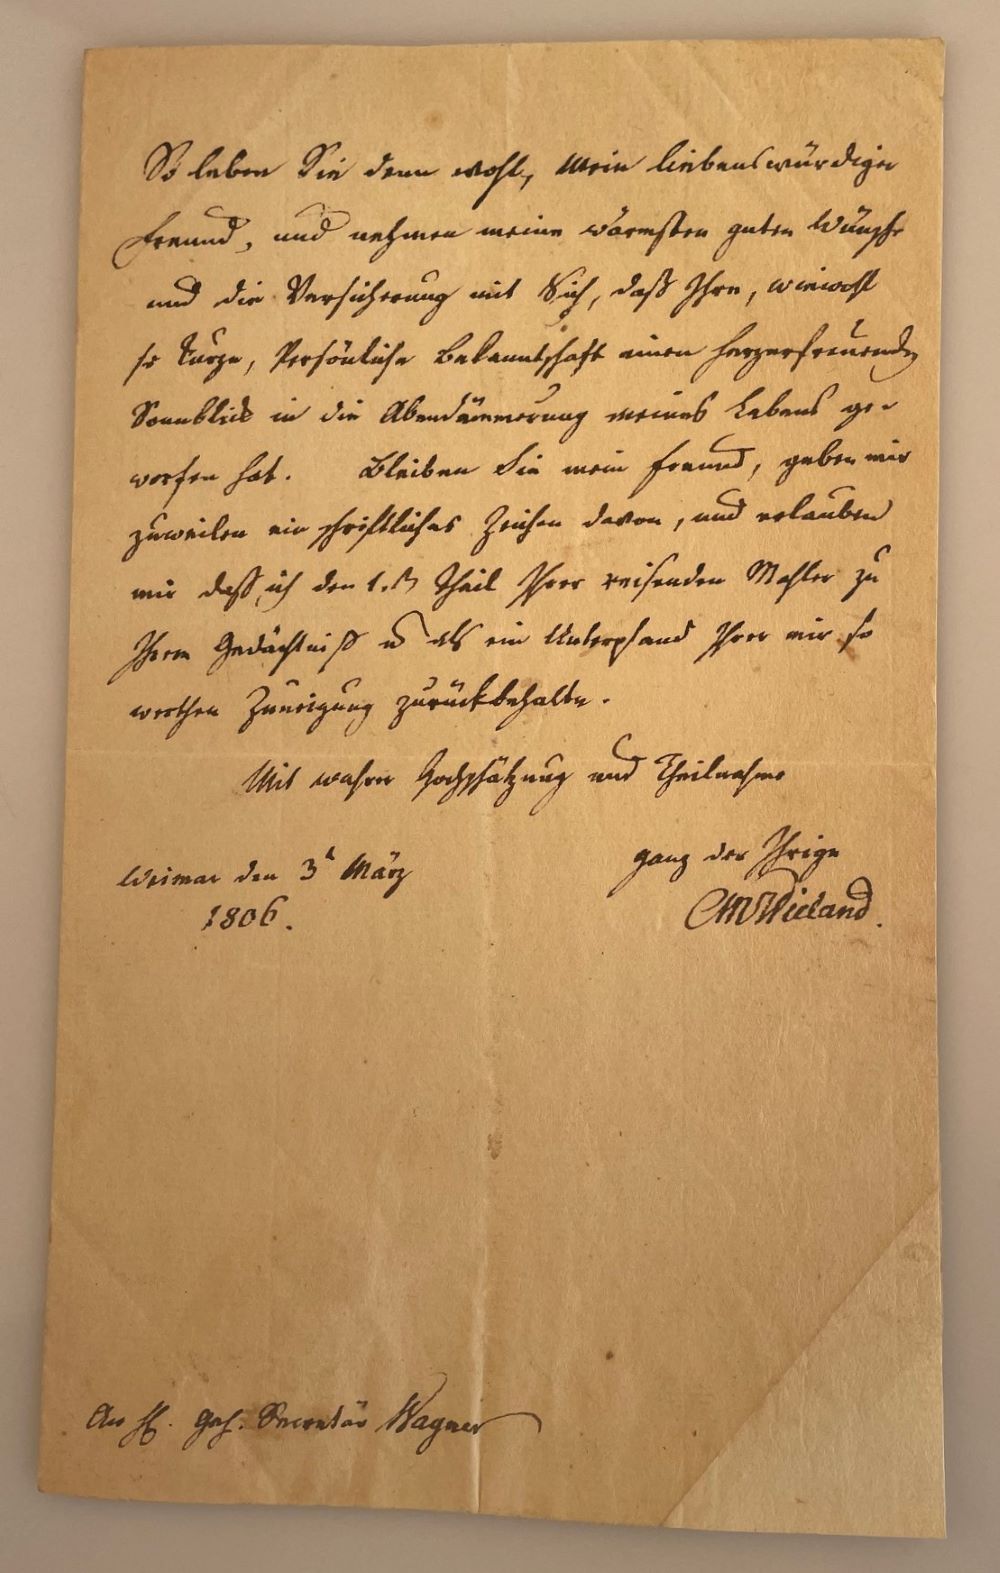 So leben Sie denn wohl, Mein liebenswürdiger
Freund, und nehmen meine wärmsten guten Wünsche
und die Versicherung mit Sich, daß Ihre, wiewohl
so kurze, Persönliche Bekanntschaft einen herzerfreuenden
Sonnblick in die Abendämmerung meines Lebens ge-
worfen hat. Bleiben Sie mein Freund, geben mir
zuweilen ein schriftliches Zeichen davon, und erlauben
mir daß ich den 1. Theil Ihrer reisenden Mahler zu
Ihrem Gedächtniß u als ein Unterpfand Ihrer mir so
werthen Zuneigung zurückbehalte.
Mit wahrer Hochschätzung und Theilnahme
ganz der Ihrige
Weimar den 3t März
CMWieland.
1806.
An H. Geh. Secretär Wagner